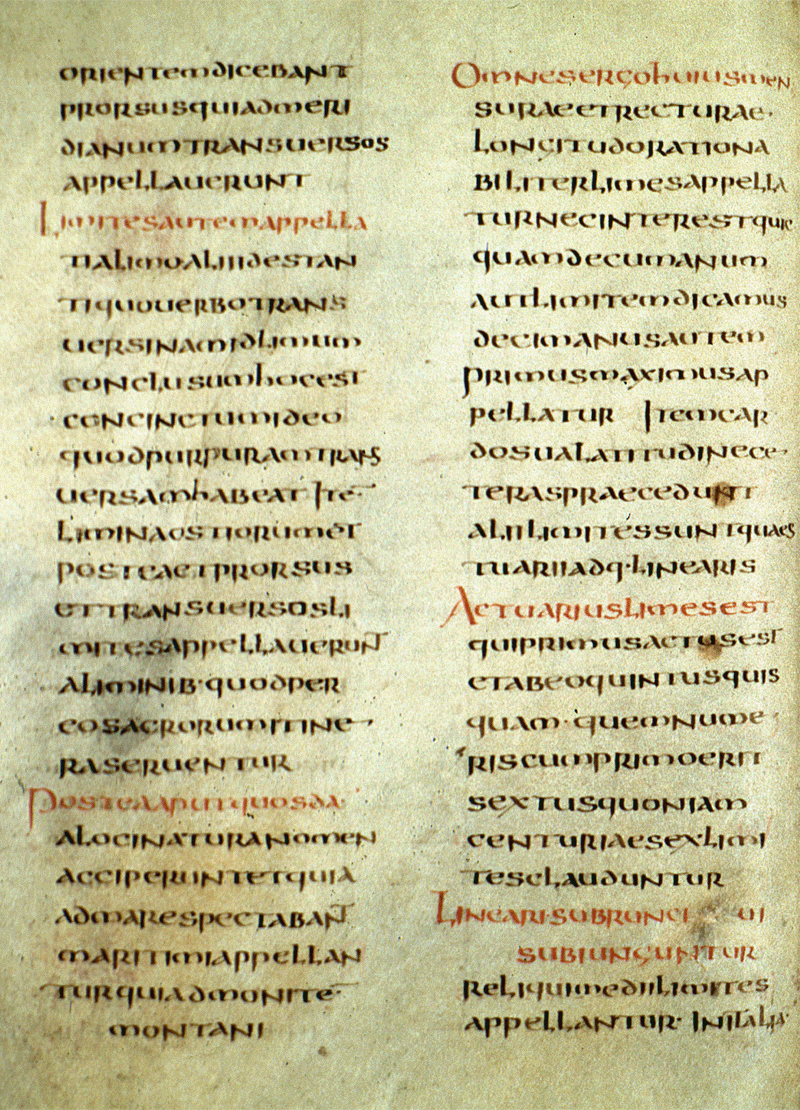 orientemdicebant
prorsusquiadmeri
dianumtransuersos
appellauerunt
Limitesautemappella
tialimoaliidestan
tiquouerbotrans
uersinamidlimum
conclusumhocest
concinctumideo
quodpurpuramtrans
uersamhabeat Ite
liminaostiorumet
posteaetprorsus
ettransuersosli
mitesappellauerunt
aliminib·quodper
eosagrorumitine
raseruentur
Posteaaputquosda
alocinaturanomen
acciperuintetquia
admarespectaban
maritimiappellan
turquiadmonte·
montani
Omnesergohuiusmen
suraeetrecturae·
longitudorationa
biliterlimesappella
turnecinterestquic
quamdecumanum
autlimitemdicamus
decimanusautem
primusmaximusap
pellatur Itemcar
dosualatitudinece·
teraspraecedunt
aliilimitessuntquaes
tuariiadq·linearis
Actuariuslimesest
quiprimusactusest
etabeoquintusquis
quam·quemnume
riscumprimoerit
sextusquoniam
centuriaesexlimi
tesclauduntur
Linearisubrunci
subiunguntur
reliquimediilimites
appellantur· Initalia·